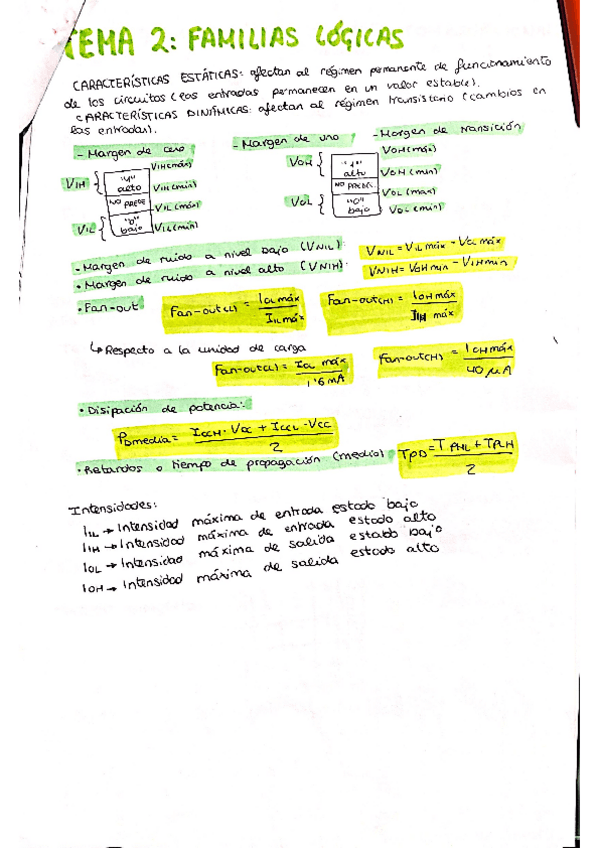 TEMA 2: FAMILIAS LÓGICAS
CARACTERÍSTICAS ESTÁTICAS: afectan al régimen permanente de funcionamiento
de los circuitos (las entradas permanecen en un valor estable).
CARACTERÍSTICAS DINÍMICAS: afectan al régimen transistorio (cambios en
las entradas).
- Margen de cero
- Margen de uno
- Margen de transición
VIH
"1"
alto
NO PUEDE
"0"
bajo
VIL
VIH(máx)
VIH(min)
VIL(máx)
VIL(min)
VOH
"1"
alto
NO PUEDE
"0"
bajo
VOL
VOH(máx)
VOH(min)
VOL(max)
VOL(min)
- Margen de ruido a nivel bajo (VNIL):
VNIL = VIL máx - VOL máx
• Margen de ruido a nivel alto (VNIH):
VNIH = VOH min - VIH min
• Fan-out
Fan-out(L) = IOL máx / IIL máx
Fan-out(H) = IOH máx / IIH máx
↳ Respecto a la unidad de carga
Fan-out(L) = IOL máx / 1'6 mA
Fan-out(H) = IOH máx / 40 μA
• Disipación de potencia:
PDmedia = ICCH · VCC + ICCL · VCC / 2
• Retardos o tiempo de propagación (medio)
TPD = TPHL + TPLH / 2
Intensidades:
IIL → Intensidad máxima de entrada estado bajo
IIH → Intensidad máxima de entrada estado alto
IOL → Intensidad máxima de salida estado bajo
IOH → Intensidad máxima de salida estado alto